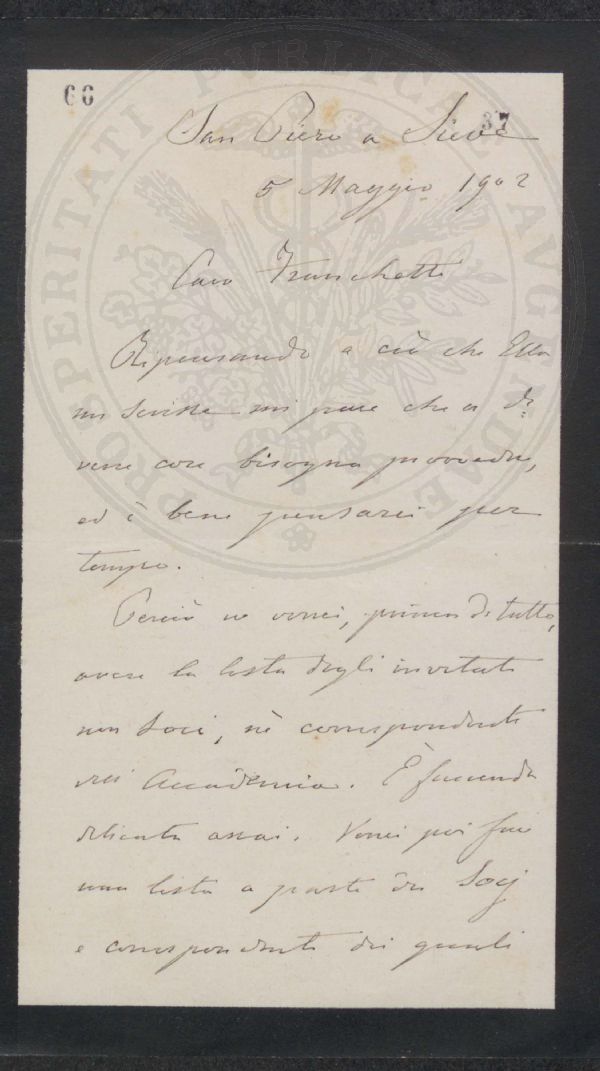 66
37
San Piero a Sieve
5 Maggio 1902
Caro Franchetti
Ripensando a ciò che Ella
mi scrisse mi pare che a di-
verse cose bisogna provvedere,
ed è bene pensarci per
tempo.
Perciò io vorrei, prima di tutto,
avere la lista degli invitati
non Soci, nè corrispondenti
dell' Accademia. È faccenda
delicata assai. Vorrei poi fare
una lista a parte dei Socj
e corrispondenti dei quali
PROSPERITATI PUBLICAE AVGENDAE